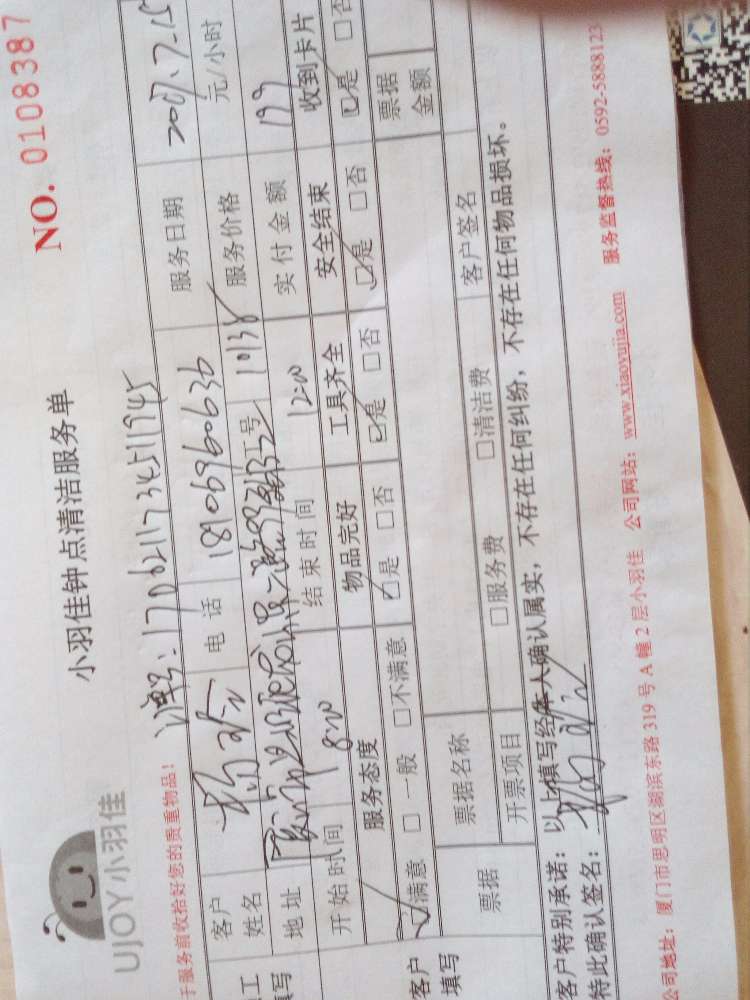 NO. 0108387
小羽佳钟点清洁服务单
UJOY小羽佳
于服务前收拾好您的贵重物品！
单号:1706211734511945
客户姓名 杨 电话 18106960636 服务日期 2017.7.15
地址 工号 10138 服务价格 元/小时
开始时间 8:00 结束时间 12:00 实付金额 199
服务态度 物品完好 工具齐全 安全结束 收到卡片
☑满意 □一般 □不满意 ☑是 □否 ☑是 □否 ☑是 □否 ☑是 □否
客户填写
票据 票据名称 客户签名 票据金额
开票项目 □服务费 □清洁费
客户特别承诺：以上填写经本人确认属实，不存在任何纠纷，不存在任何物品损坏。
特此确认签名：
公司地址：厦门市思明区湖滨东路 319 号 A 幢 2 层小羽佳 公司网站：www.xiaoyujia.com 服务监督热线：0592-5888123